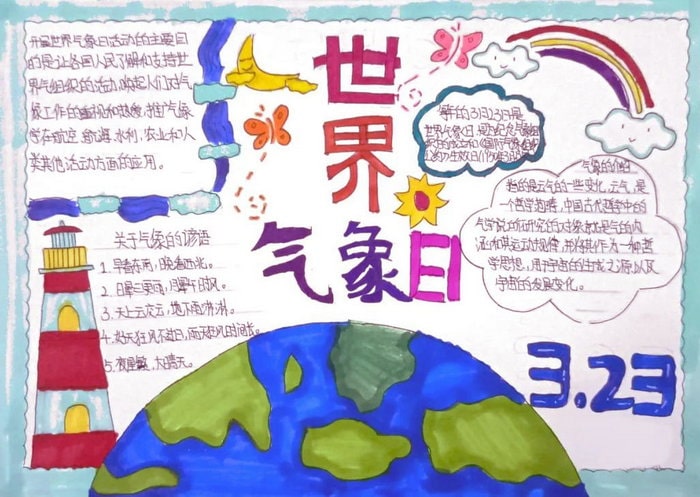 开展世界气象日活动的主要目
的是让各国人民了解和支持世
界气组织的活动,唤起人们对气
候工作的重视和热爱,推广气象
学在航空、航海、水利、农业和人
类其他活动方面的应用。
世
界
气象日
每年的3月23日是
世界气象日,是为纪念气象组
织的成立和《国际气象组织
公约》生效日
气象的
指的是云气的一些变化,云气,是
一个哲学范畴,中国古代哲学中的
气学说所研究的对象就是气的内
涵和其运动规律,并将其作为一种哲
学思想,用于宇宙的生成之源以及
宇宙的发展变化。
关于气象的谚语
1.早看东南,晚看西北。
2.日晕三更雨,月晕午时风。
3.天上云交云,地下雨淋淋。
4.好天狂风不过日,雨天狂风时间长。
5.夜星繁,大晴天。
3.23